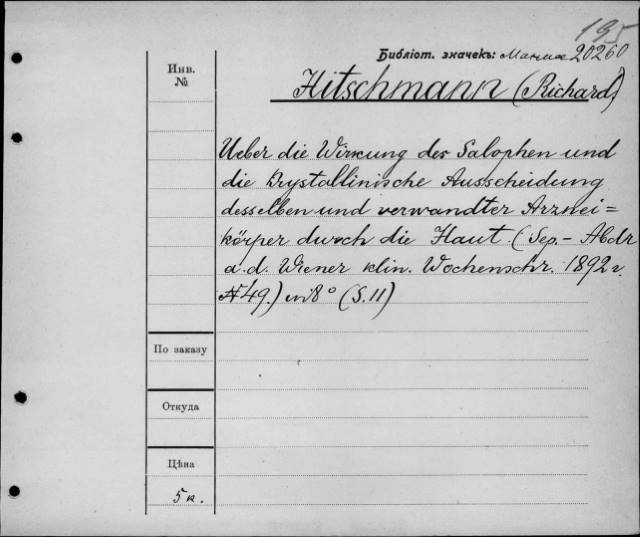 195
Библіот. значекъ: 20260
Инв.
№
Hitschmann (Richard)
Ueber die Wirkung des Salophen und
die Krystallinische Ausscheidung
desselben und verwandter Arznei=
körper durch die Haut. (Sep.-Abdr
a.d. Wiener klin. Wochenschr. 1892 г.
№ 49.) in 8° (S. 11)
По заказу
Откуда
Цѣна
5 к.